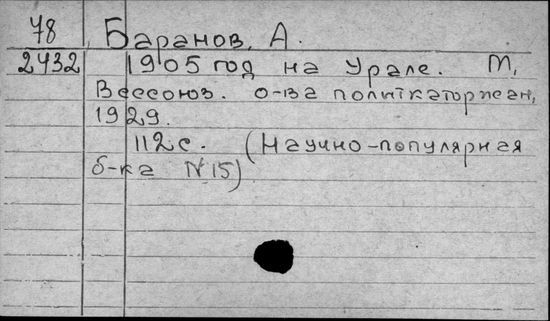 78 Баранов, А.
2432 1905 год на Урале. М,
Всесоюз. о-ва политкаторжан,
1929.
112с. (Научно-популярная
б-ка №15)